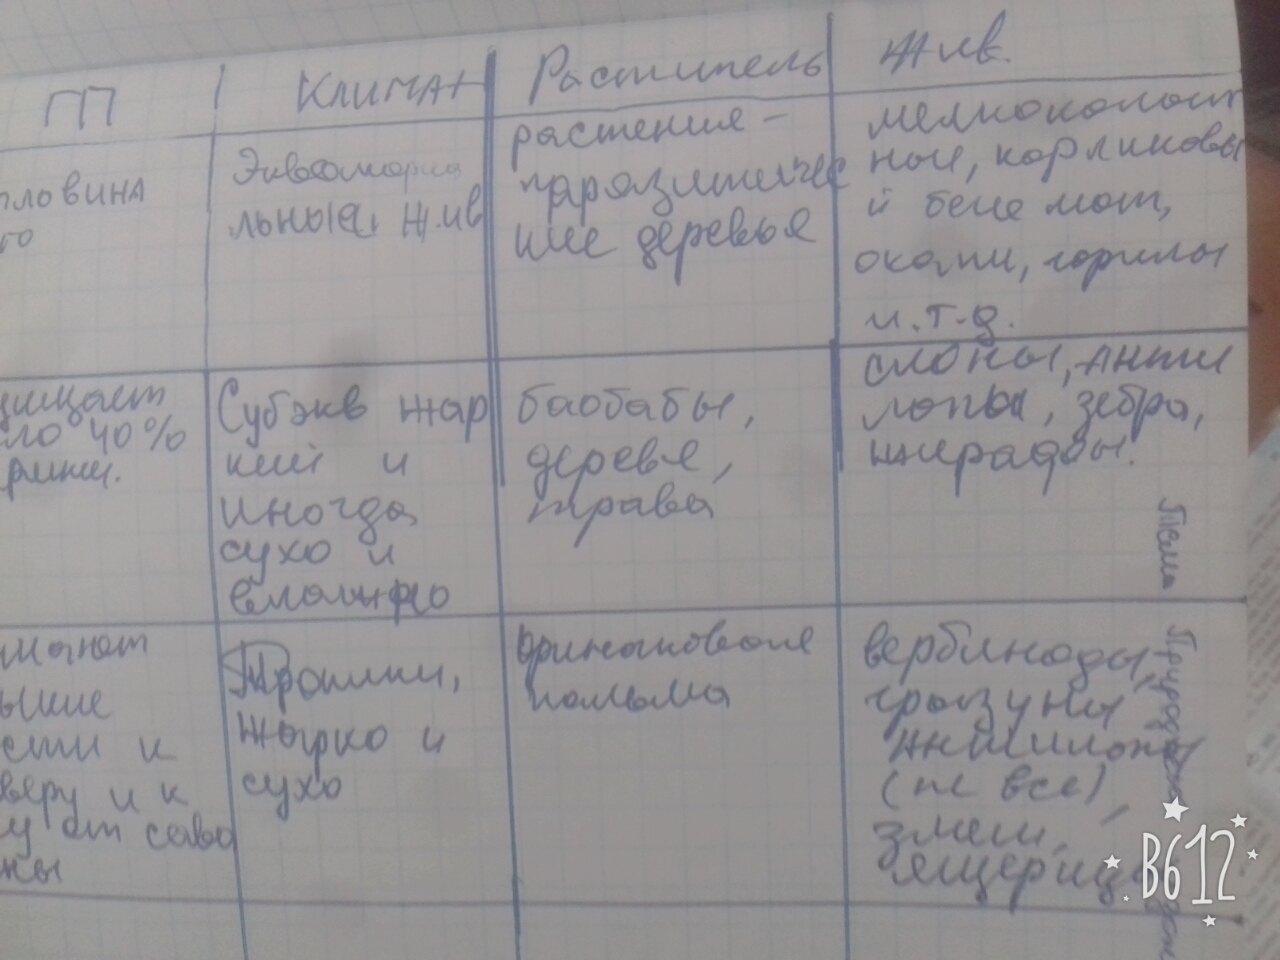 ГП
Климат
Раститель
Жив.
ловина
го
Экваториа
льный жив
растения -
паразитичес
кие деревья
мелкокопыт
ные, карликовы
й бегемот,
окапи, горилы
и.т.д.
40%
Субэкв жар
кий и
иногда
сухо и
влажно
баобабы,
деревья,
трава
слоны, анти
лопы, зебра,
жирафы.
сти к
веру и к
у от сава
ны
Тропики,
жарко и
сухо
пальма
вербл
грызуны
антилопы
(не все),
змеи,
ящериц
Тема
Природн
B612